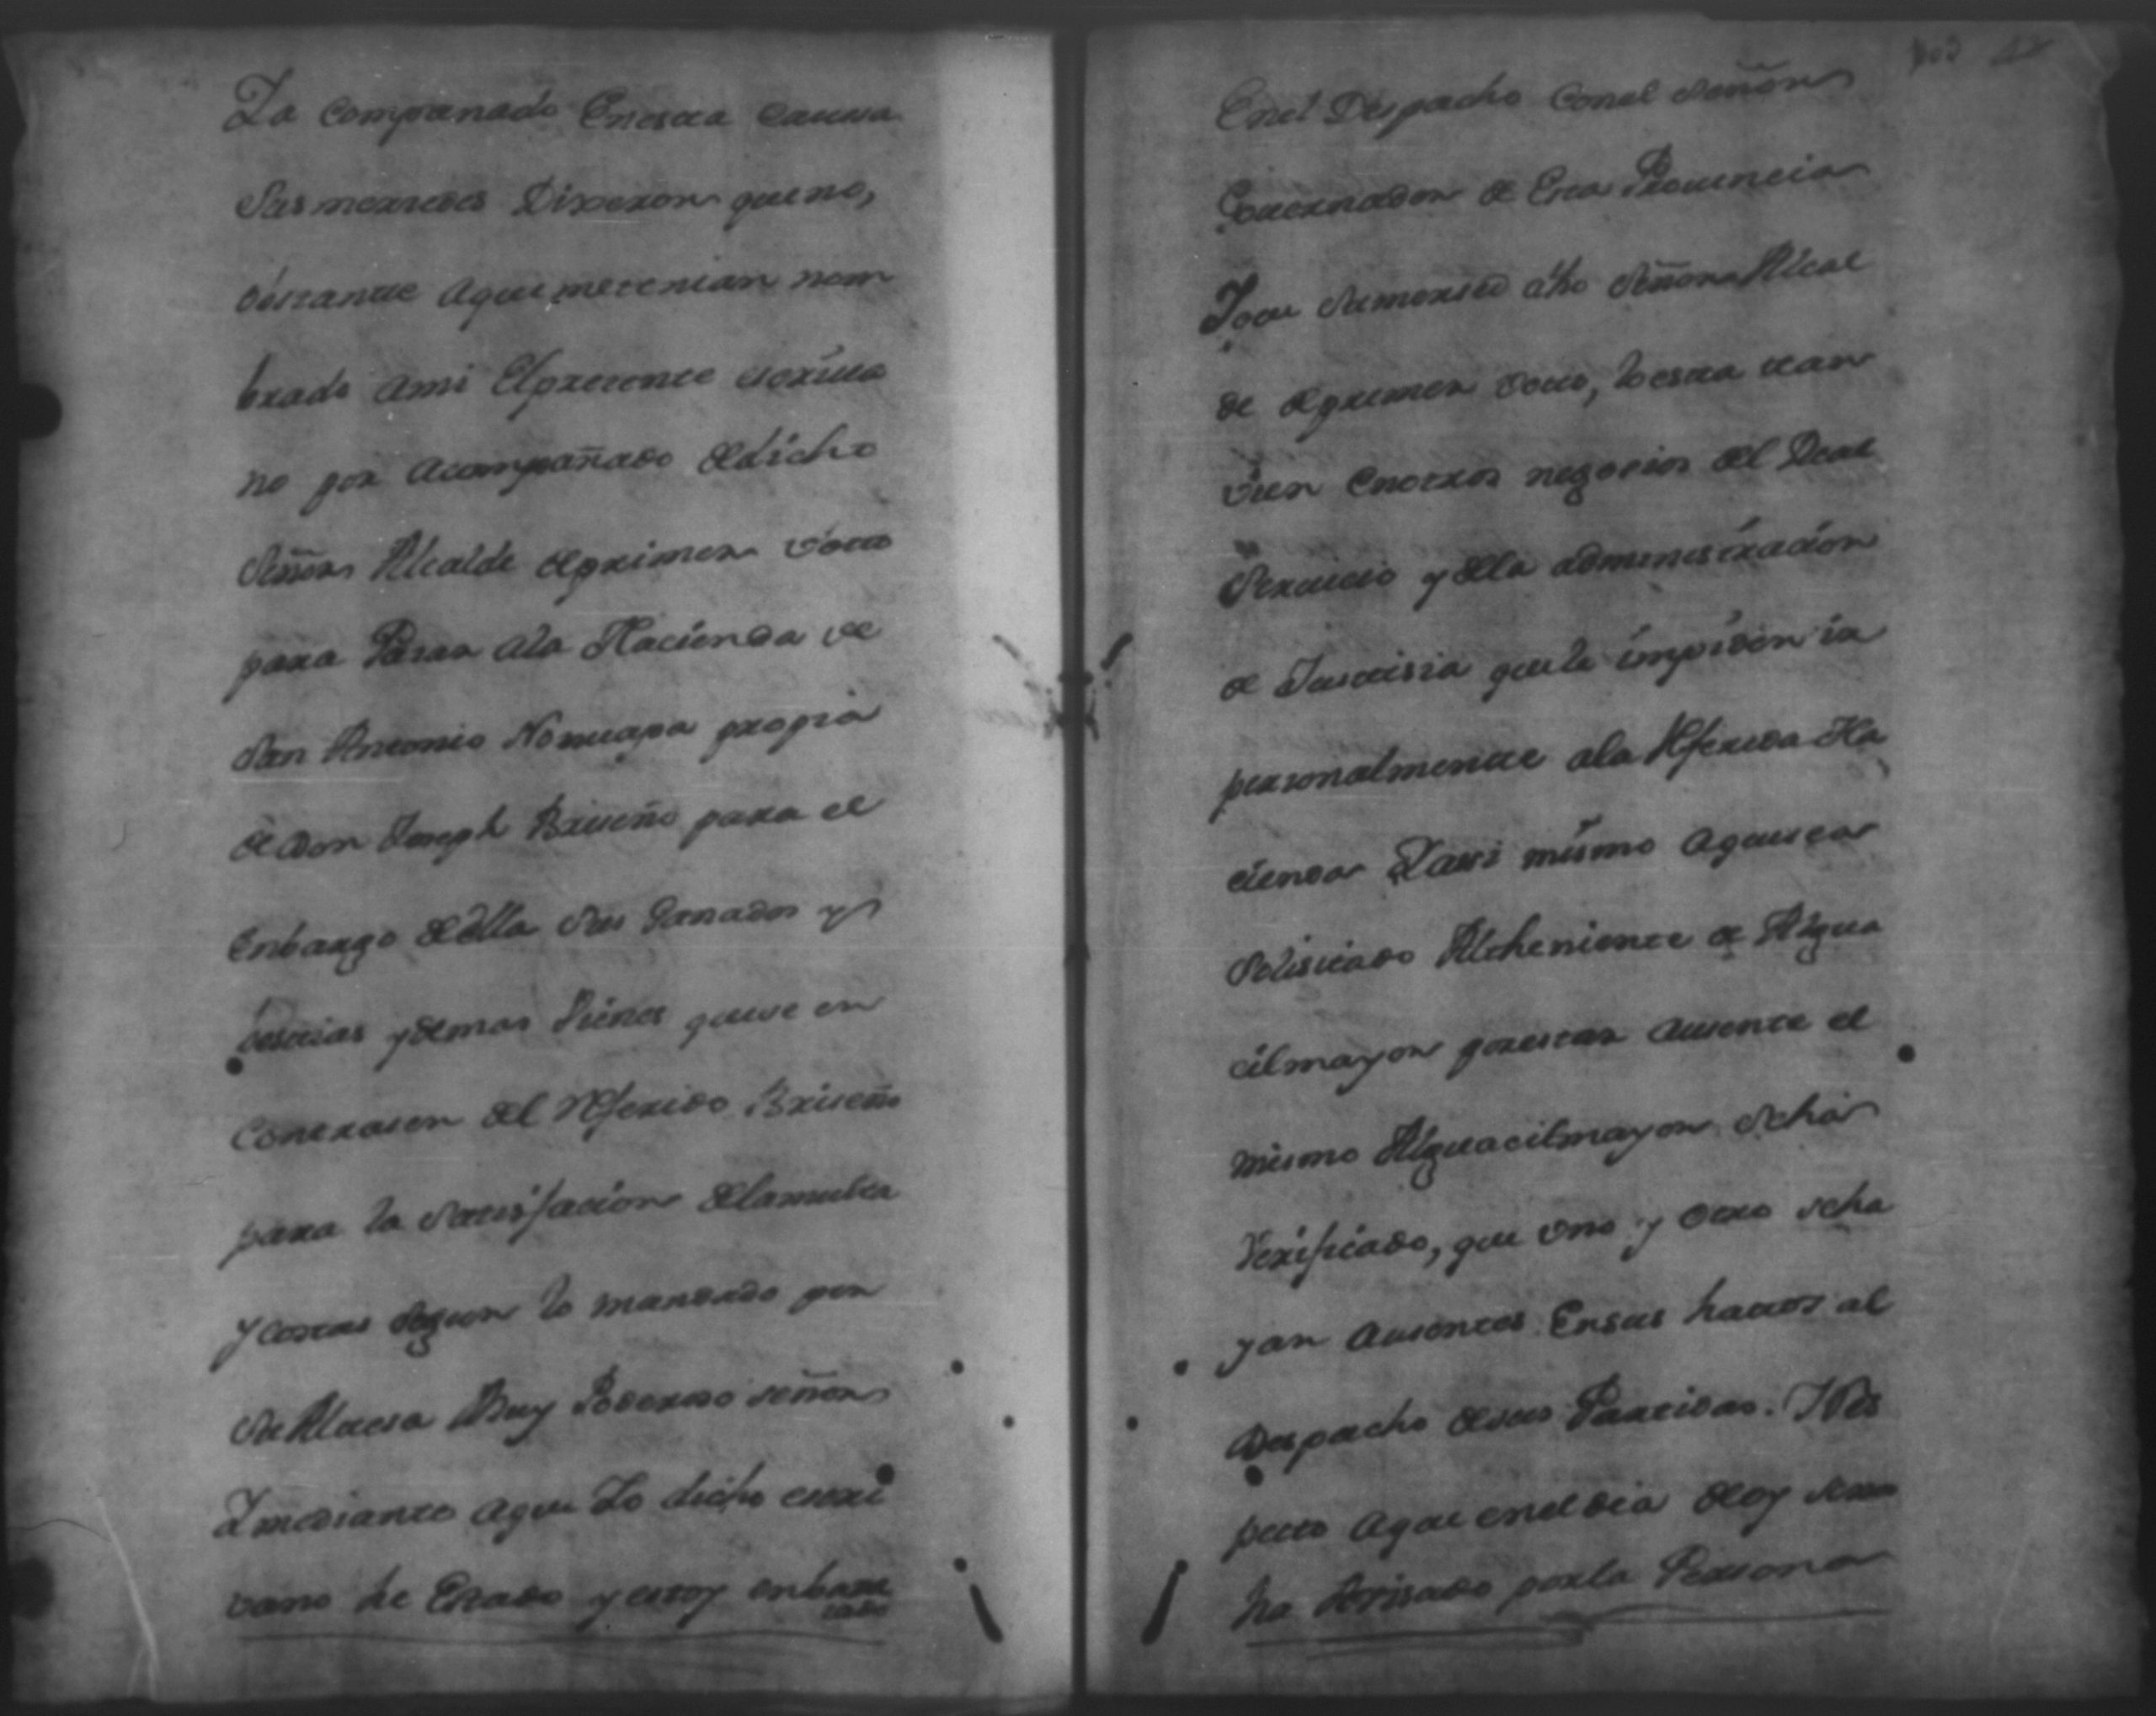 Ya Companado Enesta causa
Sus mersedes Dixeron que no,
obstante aque metenian nom
brado ami Elpresente escriva
no por acompañado dedicho
Señor Alcalde deprimer voto
para Pasar ala Hacienda de
San Antonio Nomuapa propia
de Don Joseph Briseño para el
Enbargo de ella sus Ganados y
bestias y demas Vienes que se en
Contrasen del Referido Briseño
para la Satisfacion delamulta
y costas segun lo mandado por
Su Alteza Muy Poderoso señor
Y mediante aque Yo dicho escri
vano he Estado y estoy enbara
zado
Enel Despacho Conel Señor
Governador de Esta Provincia
Yque Sumersed dho Señor Alcal
de deprimer voto, lo esta tan
vien Enotros negocios del Real
Servicio y dela administracion
de Justisia que le impiden ir
personalmente ala Referida Ha
cienda Yassi mismo aquese a
Solisitado Altheniente de Algua
cilmayor porestar ausente el
mismo Alguacilmayor seha
Verificado, que uno y otro seha
yan ausentes Ensus hattos al
Despacho desus Partidas. Y Res
pecto aque eneldia deoy seme
ha Avisado porla Persona